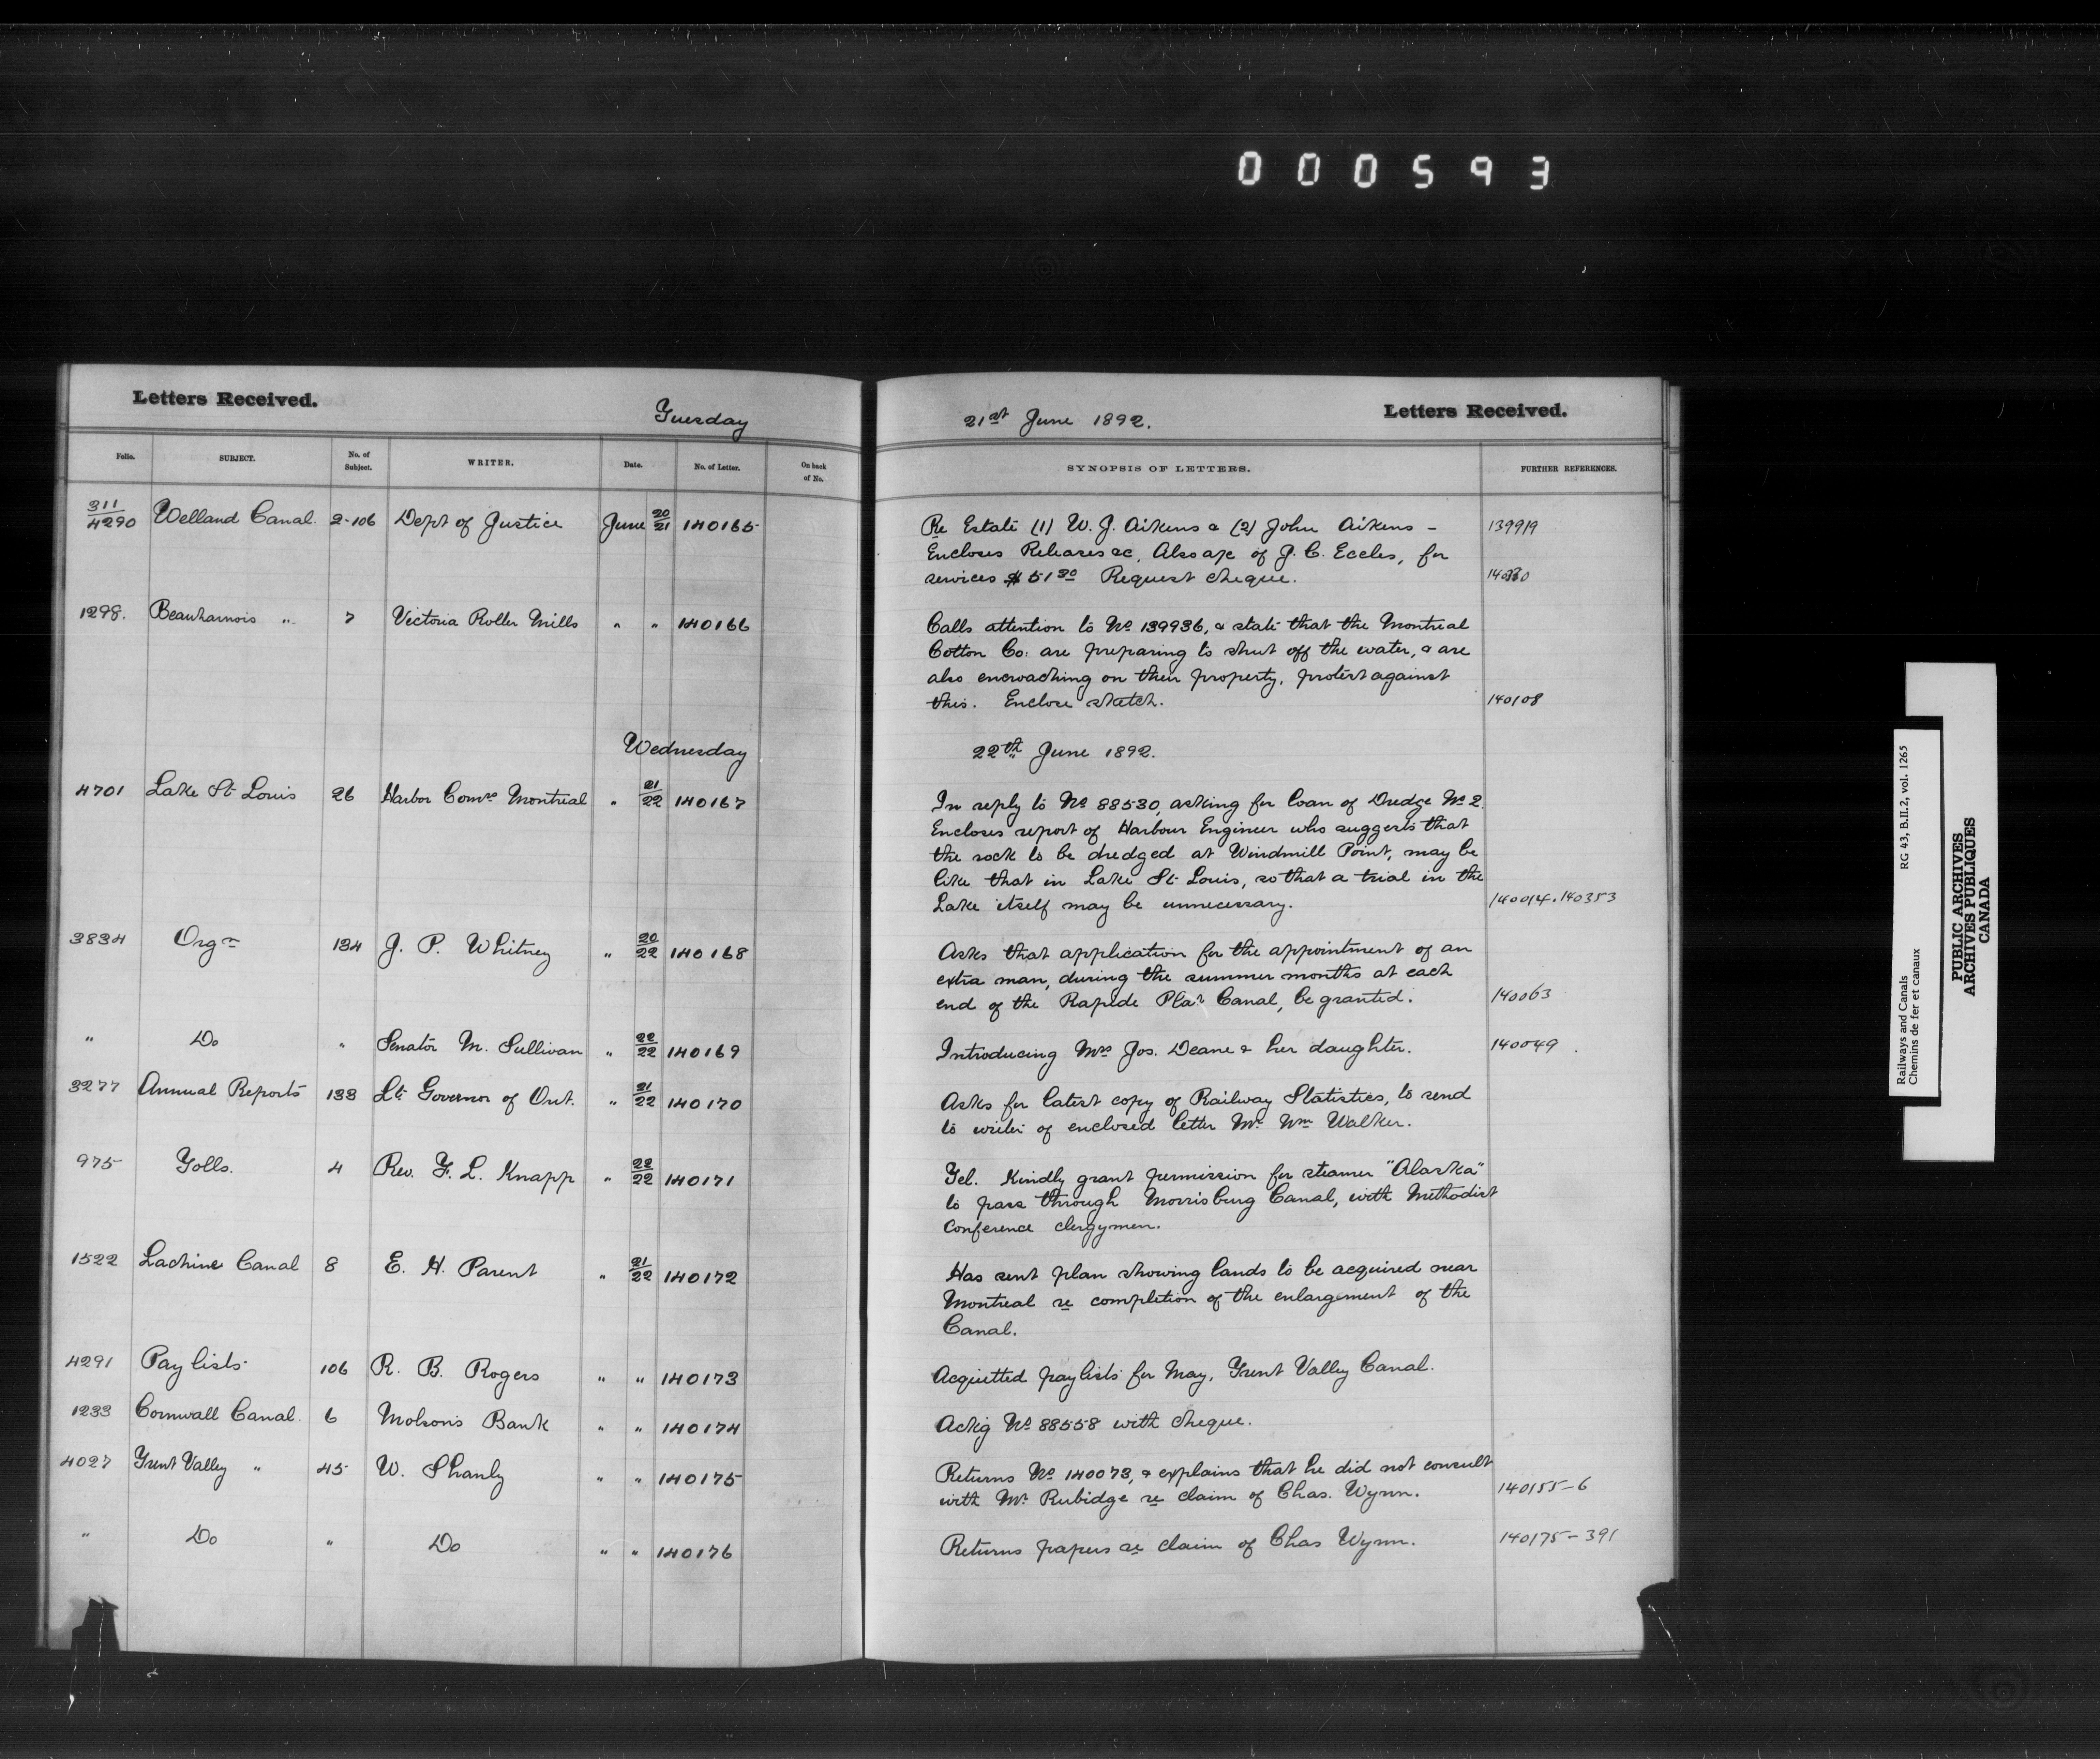 000593
Letters Received.
Tuesday
21st June 1892.
Letters Received.
Folio. SUBJECT. No. of Subject. WRITER. Date. No. of Letter. On back of No. SYNOPSIS OF LETTERS. FURTHER REFERENCES.
311/4290 Welland Canal. 2-106 Dept of Justice June 20/21 140165 Re Estate (1) W. J. Aikens & (2) John Aikens - 139919
Encloses Releases &c. Also a/c of J. C. Eccles, for
services $51 30 Request cheque.
1298. Beauharnois " 7 Victoria Roller Mills " " 140166 Calls attention to No 139936, & state that the Montreal
Cotton Co: are preparing to shut off the water, & are
also encroaching on their property, protest against
this. Enclose sketch. 140108
Wednesday 22th June 1892.
4701 Lake St Louis 26 Harbor Comrs Montreal " 21/22 140167 In reply to No 88530, asking for loan of Dredge No 2.
Encloses report of Harbour Engineer who suggests that
the rock to be dredged at Windmill Point, may be
like that in Lake St Louis, so that a trial in the
Lake itself may be unnecessary. 140014.140353
3834 Orgn 134 J. P. Whitney " 20/22 140168 Asks that application for the appointment of an
extra man, during the summer months at each
end of the Rapide Plat Canal, be granted. 140063
" Do " Senator M. Sullivan " 22/22 140169 Introducing Mrs Jos. Deane & her daughter. 140049
3277 Annual Reports 133 Lt Governor of Ont. " 21/22 140170 Asks for latest copy of Railway Statistics, to send
to writer of enclosed letter Mr Wm Walker.
975 Tolls. 4 Rev. F. L. Knapp " 22/22 140171 Tel. Kindly grant permission for steamer "Alaska"
to pass through Morrisburg Canal, with Methodist
Conference clergymen.
1522 Lachine Canal 8 E. H. Parent " 21/22 140172 Has sent plan showing lands to be acquired near
Montreal re completion of the enlargement of the
Canal.
4291 Pay lists 106 R. B. Rogers " " 140173 Acquitted paylists for May, Trent Valley Canal.
1233 Cornwall Canal. 6 Molsons Bank " " 140174 Ackg No 88558 with cheque.
4027 Trent Valley " 45 W. Shanly " " 140175 Returns No 140073, & explains that he did not consult
with Mr Rubidge re claim of Chas. Wynn. 140155-6
" Do " Do " " 140176 Returns papers re claim of Chas Wynn. 140175-391
Railways and Canals RG 43, B.II.2, vol. 1265
Chemins de fer et canaux
PUBLIC ARCHIVES
ARCHIVES PUBLIQUES
CANADA